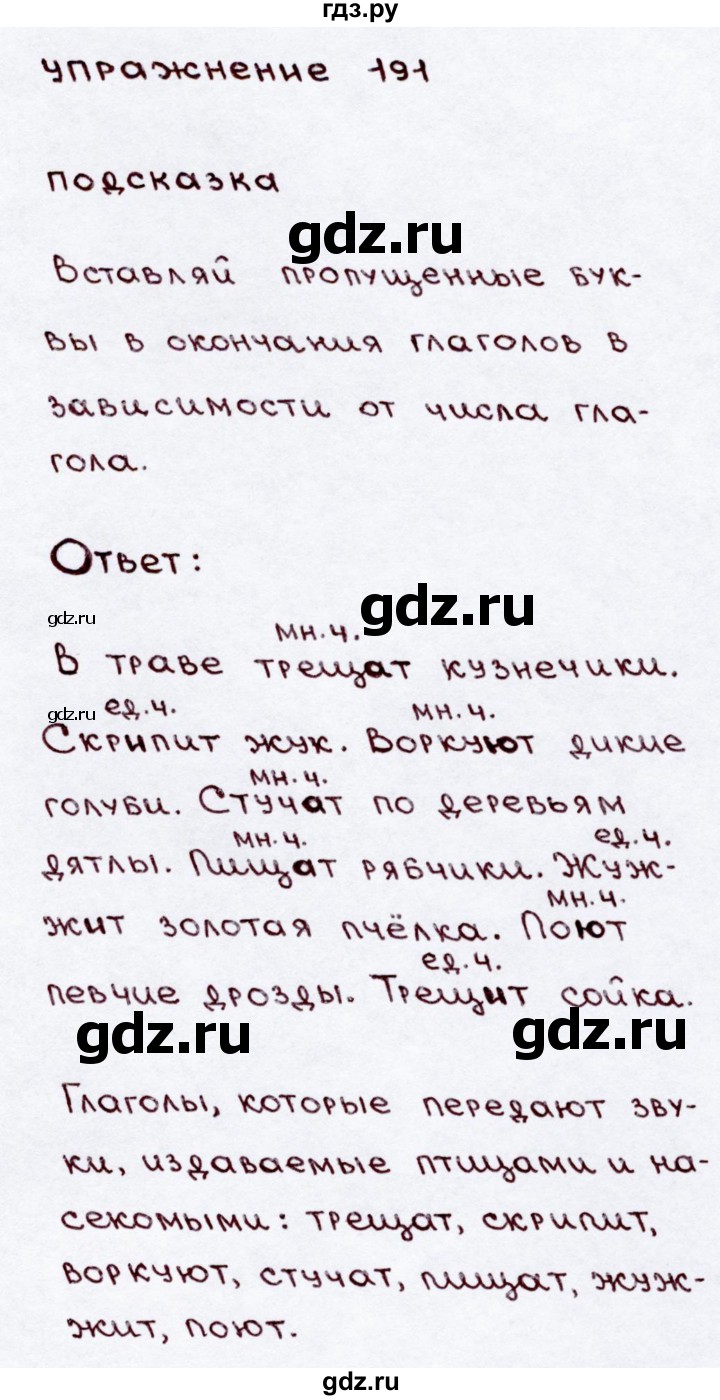 гдз.ру
упражнение 191
подсказка
gdz.ru
Вставляй пропущенные бук-
вы в окончания глаголов в
зависимости от числа гла-
гола.
Ответ:
gdz.ru
gdz.ru
мн.ч.
В траве трещат кузнечики.
gdz.ru
ед.ч. мн.ч.
Скрипит жук. Воркуют дикие
мн.ч.
голуби. Стучат по деревьям
мн.ч. ед.ч.
дятлы. Пищат рябчики. Жуж-
мн.ч.
жит золотая пчёлка. Поют
ед.ч.
певчие дрозды. Трещит сойка.
gdz.ru
gdz.ru
Глаголы, которые передают зву-
ки, издаваемые птицами и на-
секомыми: трещат, скрипит,
воркуют, стучат, пищат, жуж-
жит, поют.
gdz.ru